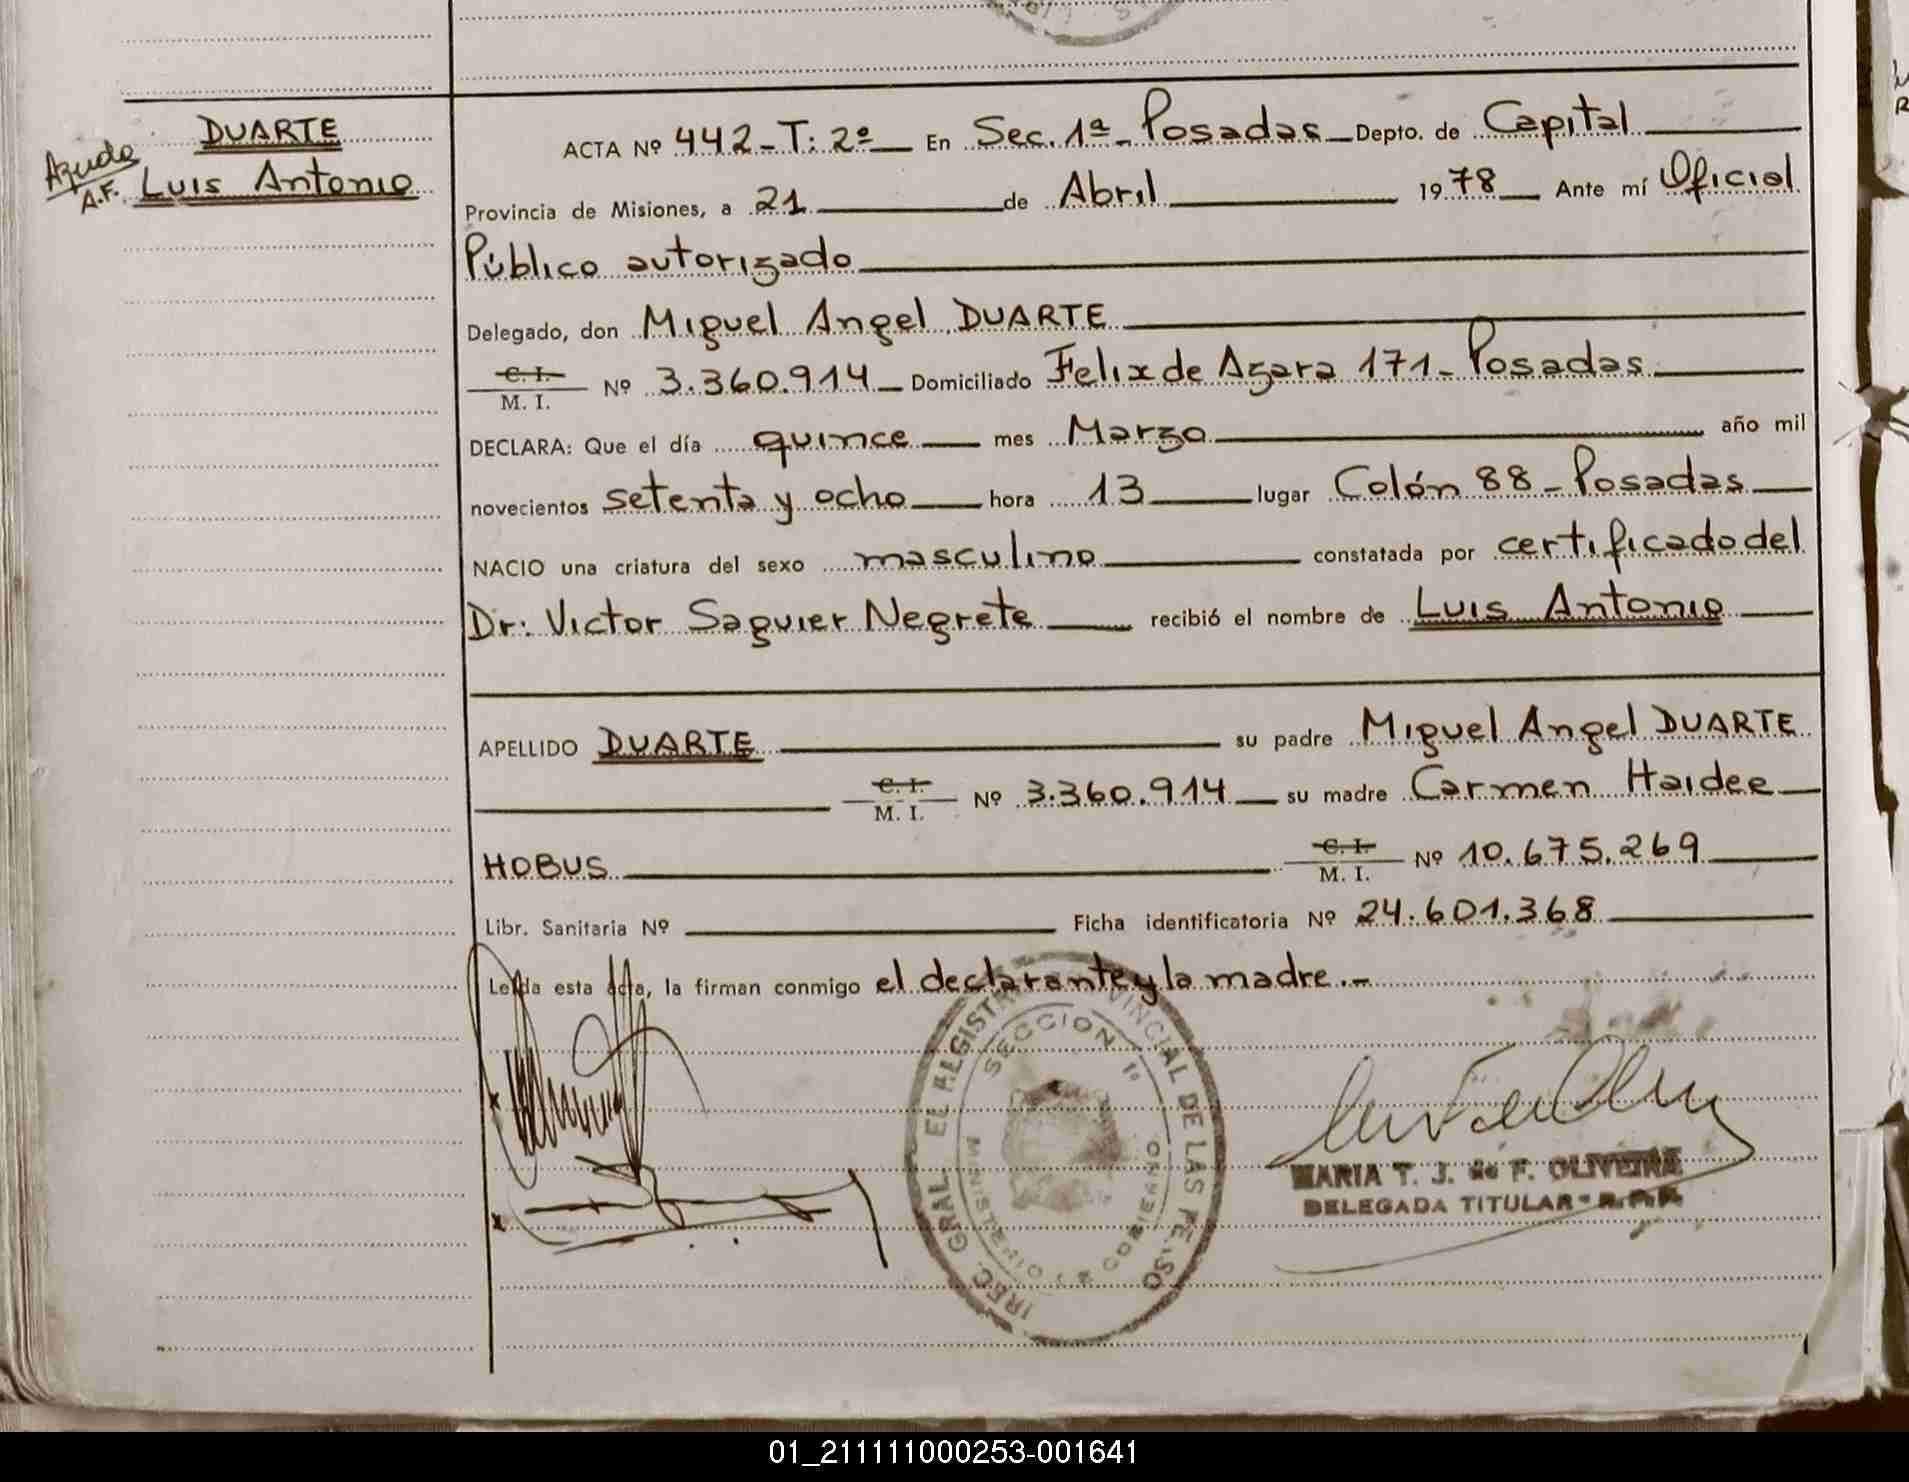 DUARTE
Luis Antonio
A.F.
ACTA Nº 442-T: 2º En Sec. 1ª - Posadas Depto. de Capital
Provincia de Misiones, a 21 de Abril 1978 Ante mí Oficial
Público autorizado
Delegado, don Miguel Angel DUARTE
C. I.
M. I. Nº 3.360.914 Domiciliado Felix de Azara 171 - Posadas
DECLARA: Que el día quince mes Marzo año mil
novecientos setenta y ocho hora 13 lugar Colón 88 - Posadas
NACIO una criatura del sexo masculino constatada por certificado del
Dr: Victor Saguier Negrete recibió el nombre de Luis Antonio
APELLIDO DUARTE su padre Miguel Angel DUARTE
C. I.
M. I. Nº 3.360.914 su madre Carmen Haidee
HOBUS C. I.
M. I. Nº 10.675.269
Libr. Sanitaria Nº Ficha identificatoria Nº 24.601.368
Leída esta acta, la firman conmigo el declarante y la madre.-
SECCION 1º
MARIA T. J. de F. OLIVEIRA
DELEGADA TITULAR
01_211111000253-001641